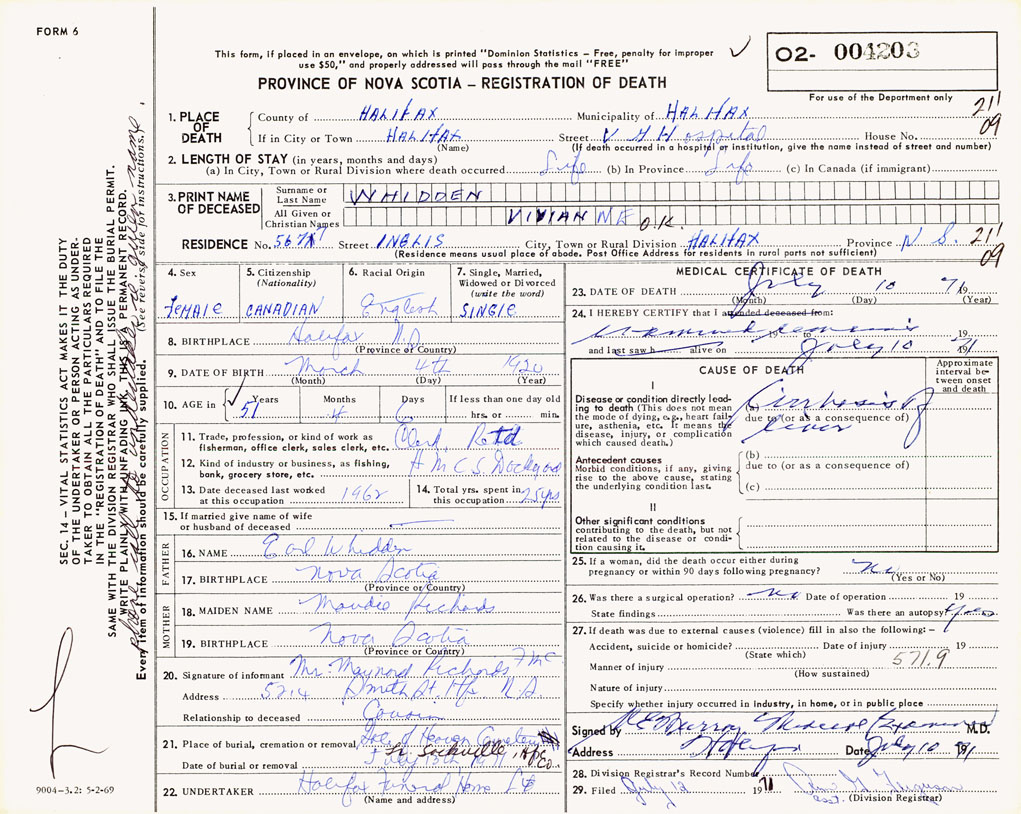 FORM 6
This form, if placed in an envelope, on which is printed "Dominion Statistics – Free, penalty for improper
use $50," and properly addressed will pass through the mail "FREE"
✓
O2- 004203
PROVINCE OF NOVA SCOTIA – REGISTRATION OF DEATH
For use of the Department only
21
09
1. PLACE OF DEATH
County of HALIFAX Municipality of HALIFAX
If in City or Town HALIFAX Street V G Hospital House No.
(Name) (If death occurred in a hospital or institution, give the name instead of street and number)
2. LENGTH OF STAY (in years, months and days)
(a) In City, Town or Rural Division where death occurred Life (b) In Province Life (c) In Canada (if immigrant)
3. PRINT NAME OF DECEASED
Surname or Last Name WHIDDEN
All Given or Christian Names VIVIAN NE O.K.
RESIDENCE No. 5675 Street INGLIS City, Town or Rural Division HALIFAX Province N.S. 21
09
(Residence means usual place of abode. Post Office Address for residents in rural parts not sufficient)
4. Sex
Female
5. Citizenship
(Nationality)
CANADIAN
6. Racial Origin
English
7. Single, Married,
Widowed or Divorced
(write the word)
Single
8. BIRTHPLACE Halifax N.S
(Province or Country)
9. DATE OF BIRTH March 4th 1920
(Month) (Day) (Year)
10. AGE in ✓ Years Months Days If less than one day old
51 4 6 hrs. or min.
OCCUPATION
11. Trade, profession, or kind of work as
fisherman, office clerk, sales clerk, etc. Clerk Retd
12. Kind of industry or business, as fishing,
bank, grocery store, etc. HMCS Dockyard
13. Date deceased last worked
at this occupation 1962
14. Total yrs. spent in
this occupation 25 yrs
15. If married give name of wife
or husband of deceased
FATHER
16. NAME Earl Whidden
17. BIRTHPLACE Nova Scotia
(Province or Country)
MOTHER
18. MAIDEN NAME Maudie Richards
19. BIRTHPLACE Nova Scotia
(Province or Country)
20. Signature of informant Mr. Maynard Richards
Address 5214 Smith St. Hfx N.S
Relationship to deceased Cousin
21. Place of burial, cremation or removal Gate of Heaven Cemetery
Lr. Sackville, Hfx Co.
Date of burial or removal July 13th 1971
22. UNDERTAKER Halifax Funeral Home Ltd
(Name and address)
MEDICAL CERTIFICATE OF DEATH
23. DATE OF DEATH July 10 1971
(Month) (Day) (Year)
24. I HEREBY CERTIFY that I attended deceased from:
19 to 19
and last saw h alive on July 10 1971
CAUSE OF DEATH
Approximate interval between onset and death
I
Disease or condition directly leading to death (This does not mean the mode of dying, e.g., heart failure, asthenia, etc. It means the disease, injury, or complication which caused death.)
(a) Cirrhosis of
due to (or as a consequence of)
liver
Antecedent causes
Morbid conditions, if any, giving rise to the above cause, stating the underlying condition last.
(b)
due to (or as a consequence of)
(c)
II
Other significant conditions
contributing to the death, but not related to the disease or condition causing it.
25. If a woman, did the death occur either during
pregnancy or within 90 days following pregnancy? No
(Yes or No)
26. Was there a surgical operation? No Date of operation 19
State findings Was there an autopsy? Yes
27. If death was due to external causes (violence) fill in also the following: –
Accident, suicide or homicide? Date of injury 19
(State which) 571.9
Manner of injury
(How sustained)
Nature of injury
Specify whether injury occurred in industry, in home, or in public place
Signed by McMurray Medical Examiner M.D.
Address Date July 10 1971
28. Division Registrar's Record Number
29. Filed July 12 1971 Ferguson
asst. (Division Registrar)
SEC. 14 – VITAL STATISTICS ACT MAKES IT THE DUTY
OF THE UNDERTAKER OR PERSON ACTING AS UNDER-
TAKER TO OBTAIN ALL THE PARTICULARS REQUIRED
IN THE "REGISTRATION OF DEATH" AND TO FILE THE
SAME WITH THE DIVISION REGISTRAR WHO SHALL ISSUE THE BURIAL PERMIT.
WRITE PLAINLY WITH UNFADING INK, THIS IS A PERMANENT RECORD.
Every item of information should be carefully supplied. (See reverse side for instructions.)
phone call to undertaker re: given name
9004-3.2: 5-2-69